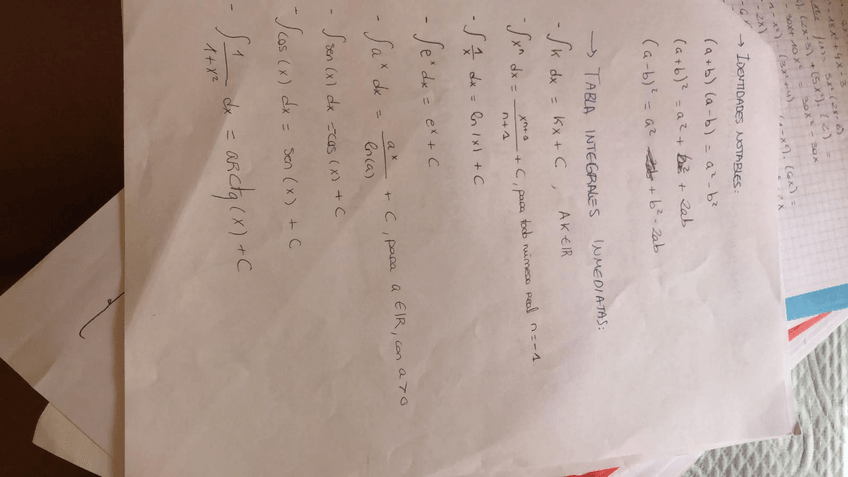 → IDENTIDADES NOTABLES:
(a+b) (a-b) = a² - b²
(a+b)² = a² + b² + 2ab
(a-b)² = a² + b² - 2ab
→ TABLA INTEGRALES INMEDIATAS:
- ∫ k dx = kx + C , ∀ K ∈ ℝ
- ∫ xⁿ dx = xⁿ⁺¹/(n+1) + C, para todo número real n = -1
- ∫ 1/x dx = ln |x| + C
- ∫ eˣ dx = eˣ + C
- ∫ aˣ dx = aˣ/ln(a) + C, para a ∈ ℝ, con a > 0
- ∫ sen (x) dx = -cos (x) + C
- ∫ cos (x) dx = sen (x) + C
- ∫ 1/(1+x²) dx = arctg (x) + C